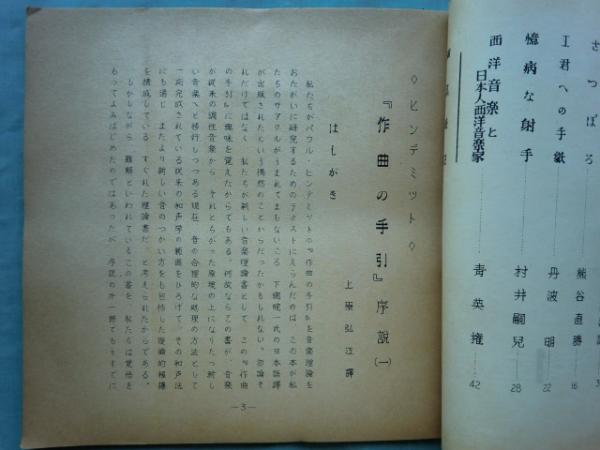 さっぽろ
熊谷直勝
16
I君への手紙
丹波明
22
憶病な射手
村井嗣児
28
西洋音楽と
日本人西洋音楽家
青英権
42
◇ヒンデミット◇
『作曲の手引』序説(一)
上原弘江譯
はしがき
私たちがパウル・ヒンデミットの『作曲の手引』を音楽理論を
おたがいに研究するためのテクストにえらんだのは、この本が私
たちのサアクルがうまれてまもないころ、下總皖一氏の日本語譯
が出版されたという偶然のことからだつたかもしれない。勿論そ
れだけではなく、私たちが新しい音楽理論書として、この『作曲
の手引』に興味を覚えたからでもある。何故ならこの書が、音楽
が従来の調性音楽から、それとちがった原理の上になりたつ新し
い音楽へと移行しつつある現在、音の合理的な処理の方法として
一応完成されている従来の和声学の範囲をひろげて、その和声法
にも通じ、またより新しい音のつかい方をも包括した理論的根據
を構成している、すぐれた理論書だ、と考えられたからである。
しかしながら、難解といわれているこの書を、私たちは覚悟を
もってよみはじめたのではあったが、序説のホ一頁でもうすでに
—3—